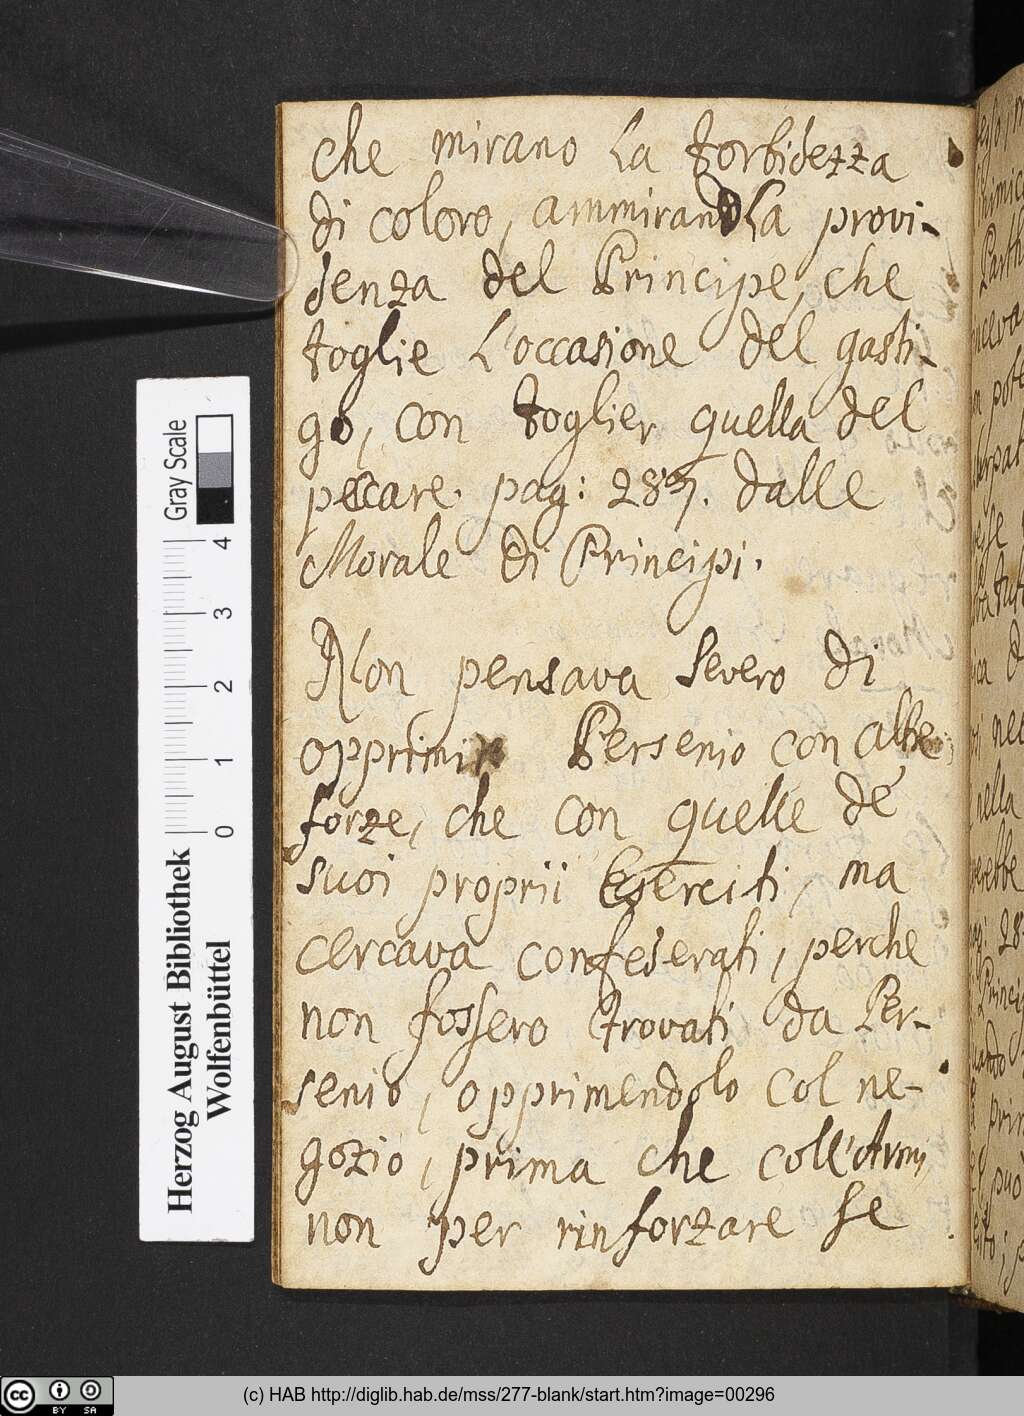 che mirano la torbidezza
di coloro, ammirando la provi-
denza del Principe, che
toglie l'occasione del gasti-
go, con toglier quella del
peccare. pag: 287. dalle
Morale di Principi.
Non pensava Severo di
opprimir Persenio con altre
forze, che con quelle de
suoi proprii Eserciti, ma
cercava confederati, perche
non fossero trovati da Per-
senio, opprimendolo col ne-
gozio, prima che coll'Armi,
non per rinforzare se
Herzog August Bibliothek
Wolfenbüttel
Gray Scale
0 1 2 3 4
(c) HAB http://diglib.hab.de/mss/277-blank/start.htm?image=00296
cc BY SA